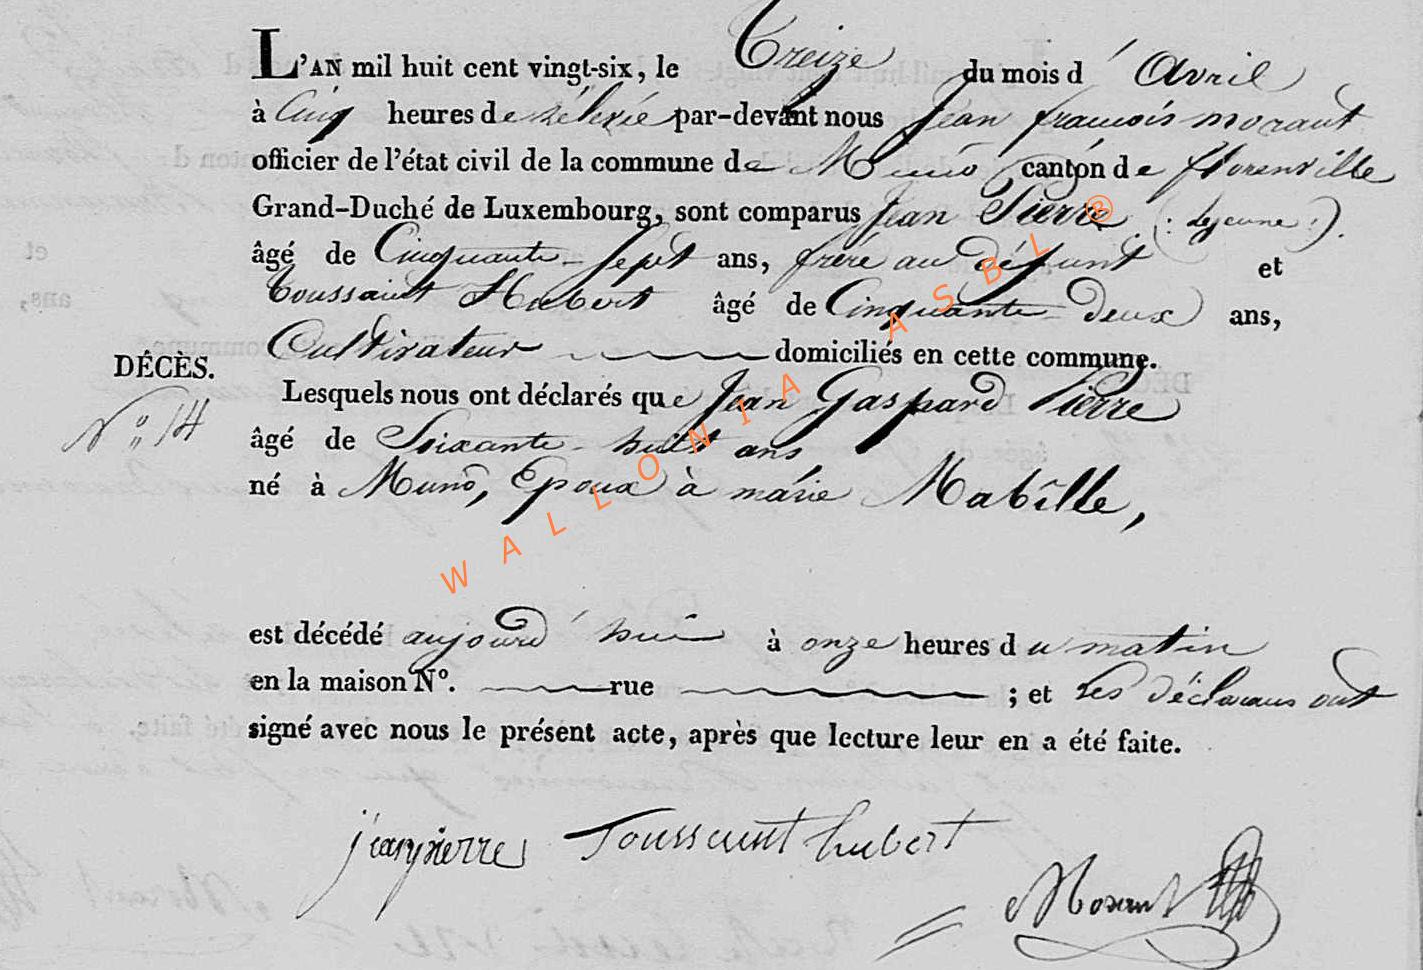 L'AN mil huit cent vingt-six, le Treize du mois d' Avril
à Cinq heures de rélevée par-devant nous Jean francois morant
officier de l'état civil de la commune de Muno canton de florenville
Grand-Duché de Luxembourg, sont comparus Jean Pierre (: lejeune :).
âgé de Cinquante-sept ans, frére au défunt et
toussaint Hubert âgé de Cinquante-deux ans,
Cultivateur domiciliés en cette commune.
DÉCÈS.
Lesquels nous ont déclarés que Jean Gaspard Pierre
N.o 14
âgé de Soixante-huit ans
né à Muno, Epoux à marie Mabille,
WALLONIA ASBL ®
est décédé aujourd'hui à onze heures du matin
en la maison No. rue ; et les déclarans ont
signé avec nous le présent acte, après que lecture leur en a été faite.
jeanpierre Toussaint hubert
Morant